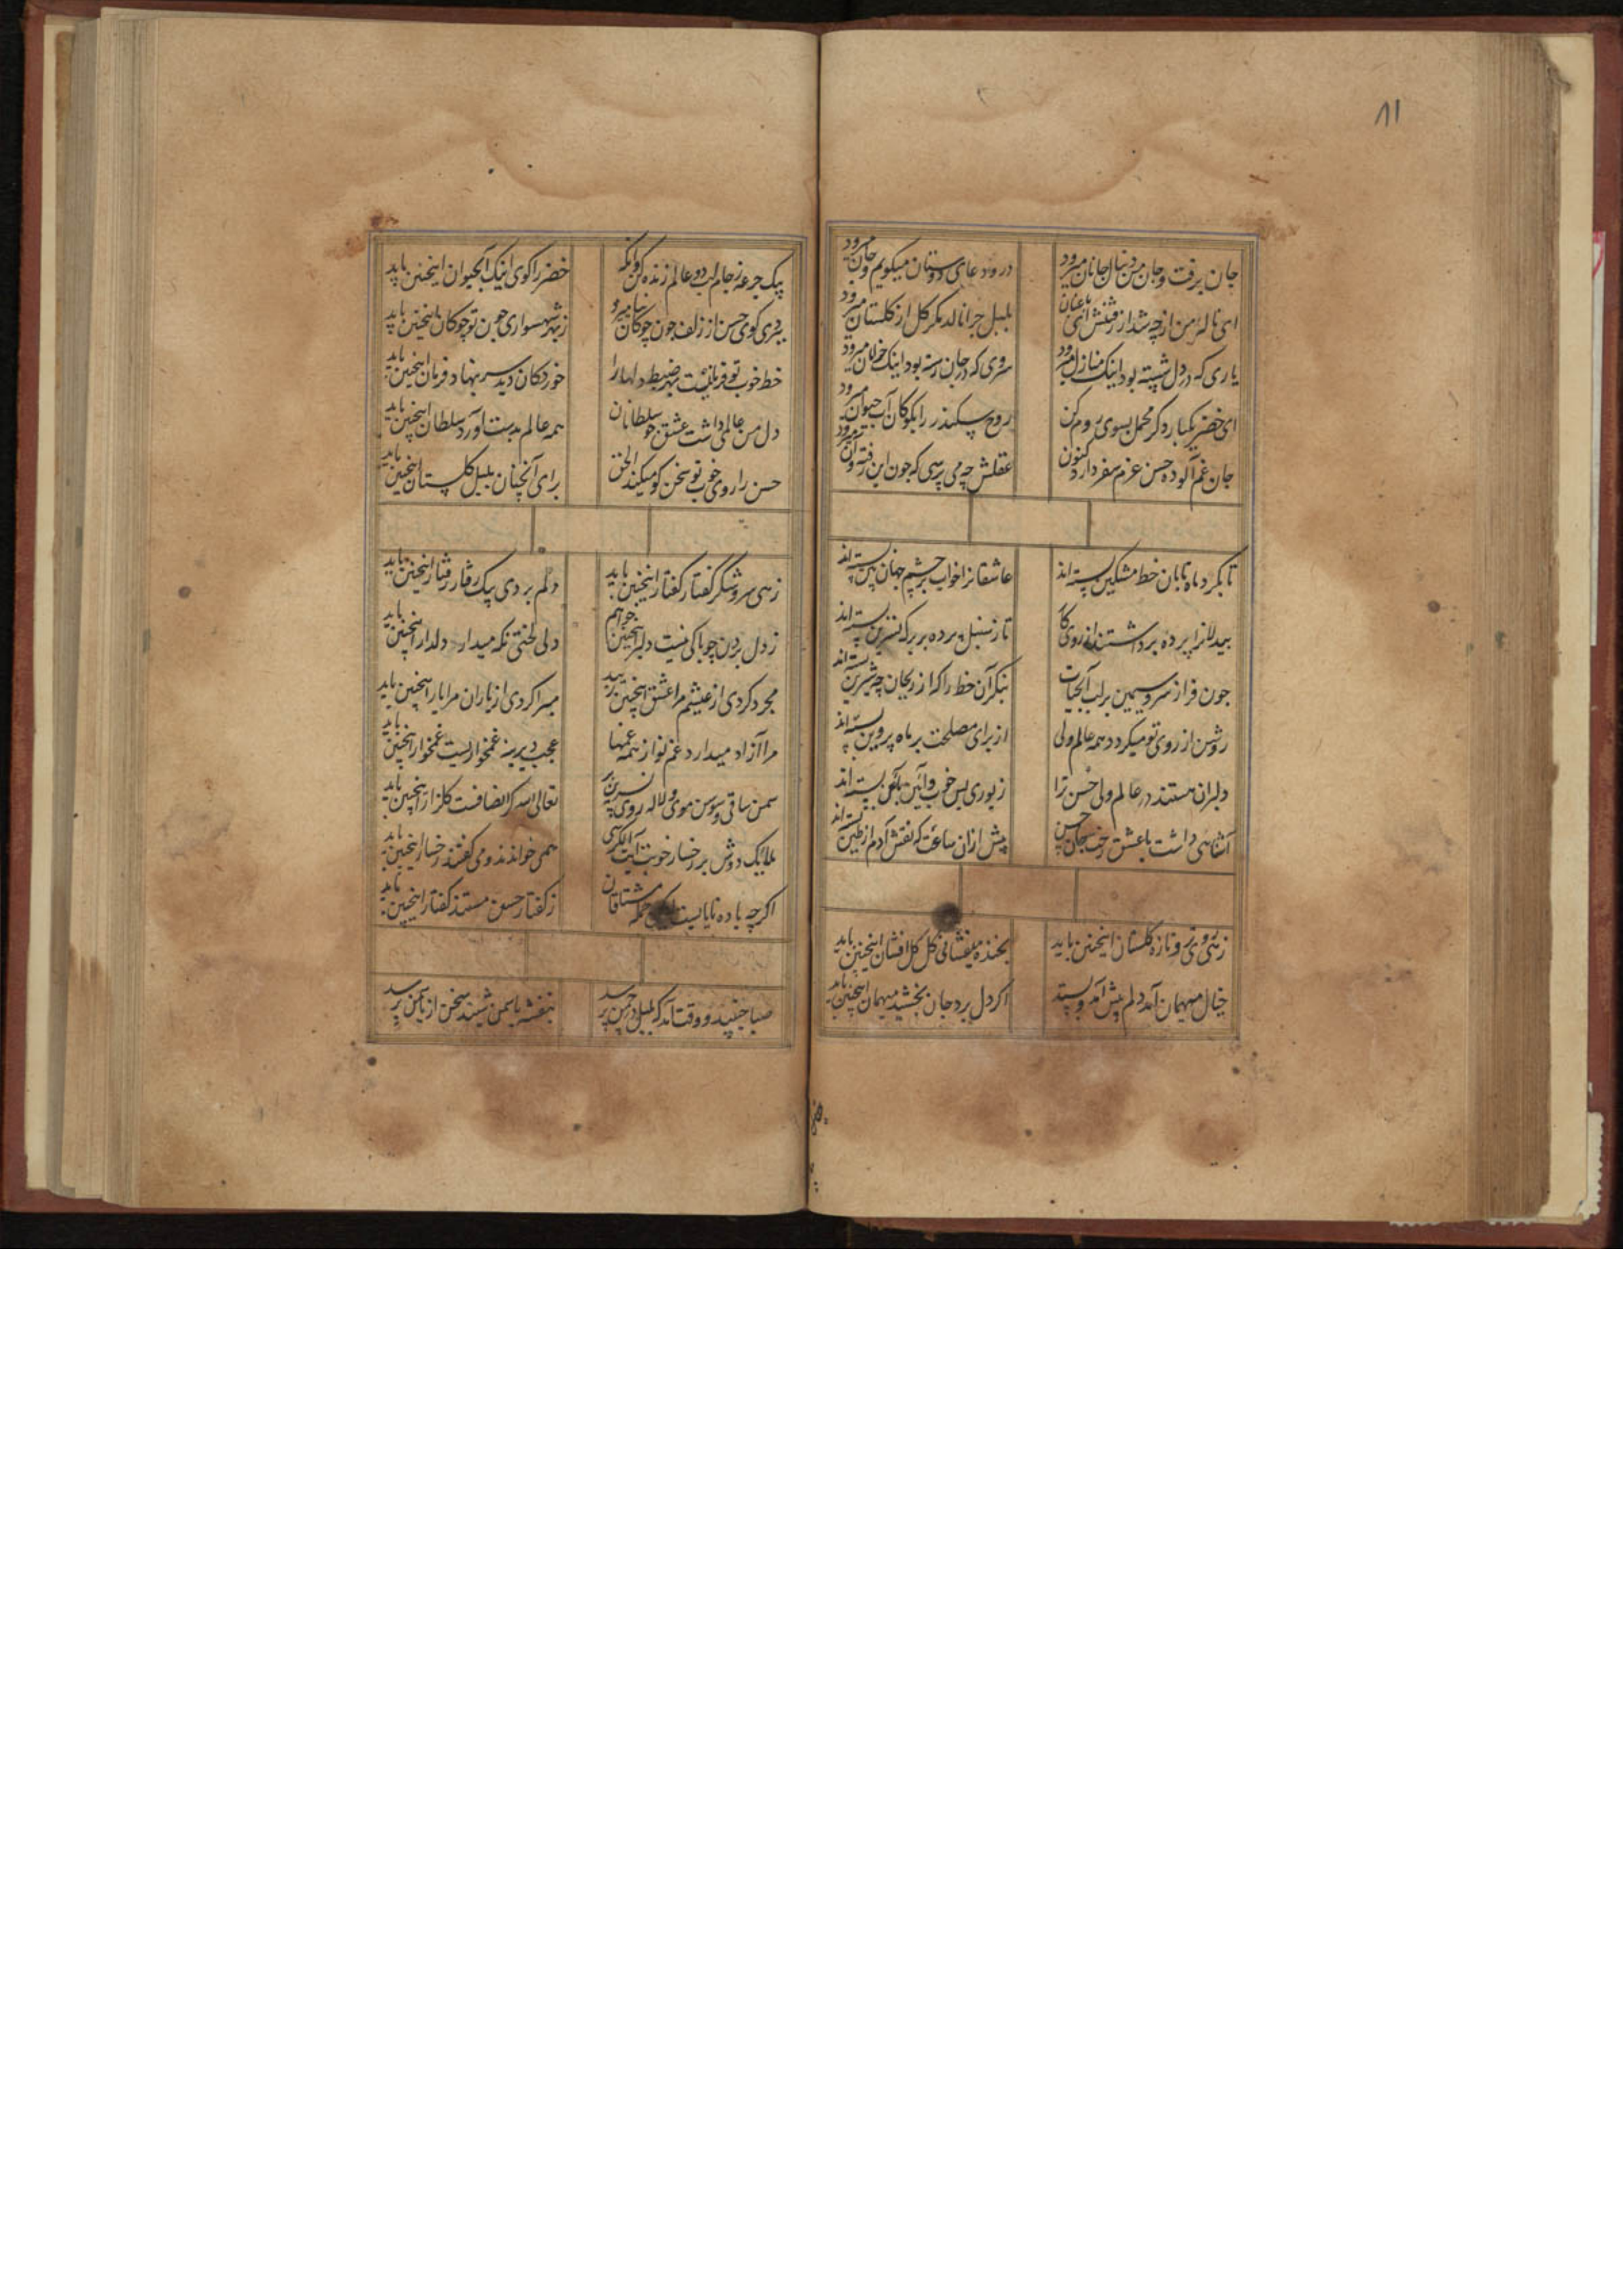 ۸۱
جان برفت و جان من دنبال جانان میرود
درود عای دوستان میکویم و جان میرود
ای نالۀ من از چه شد از رفتنش
بلبل چرا نالد مکر کل از کلستان میرود
یاری که در دل شسته بود اینک منازل میرود
سروی که در جان رسته بود اینک خرامان میرود
ای خضر یکباره کر محمل بسوی روم کن
روح سکندر را بکو کان آب حیوان میرود
جان غم آلود حسن عزم سفر دارد کنون
عقلش چه می پرسی که چون این رفت و آن میرود
تا بکرد ماه تابان خط مشکین بسته اند
عاشقانرا خواب بر چشم جهان بین بسته اند
بیدلانرا پرده برداشتند از روی
تا ز سنبل پرده بر برک نسرین بسته اند
چون فراز سرو سیمین بر لب آبحیات
بنکر آن خط را که از ریحان چه شیرین بسته اند
روشن از روی تو میکردد همه عالم ولی
از برای مصلحت بر ماه پروین بسته اند
دلبران هستند در عالم ولی حسن ترا
زیوری بس خوب و آئین بسته اند
آشنایی داشت با عشق رخت جان حسن
پیش ازان ساعت که نقش آدم از طین بسته اند
زهی روی تر و تازه کلستان اینچنین باید
بخنده میفشانی کل کل افشان اینچنین باید
خیال میهمان آمد دلم پیش آمد و بستد
اکر دل برد جان بخشید میهمان اینچنین باید
یک جرعه ز جام لب دو عالم زنده کن وانکه
خضر را کوی اینک آبحیوان اینچنین باید
ببردی کوی حسن از زلف چون چوکان
زهی شهسواری چون تو چوکان اینچنین باید
خط خوب تو فرمانیست بهر ضبط دلها را
خرد کان دید سر بنهاد فرمان اینچنین باید
دل من عالمی داشت عشق چو سلطانان
همه عالم بدست آورد سلطان اینچنین باید
حسن را روی خوب تو سخن کو میکند الحق
برای آنچنان بلبل کلستان اینچنین باید
زهی سرو شکر گفتار کفتار اینچنین باید
دلم بردی بیک رفتار رفتار اینچنین باید
ز دل بردن چو باکی نیست دلبر اینچنین خواهم
دلی لختی نکه میدار دلدار اینچنین باید
مجرد کردی از عیشم مرا عشق اینچنین زیبد
مبرا کردی از یاران مرا یار اینچنین باید
مرا آزاد میدارد غم تو از همه غمها
عجب دیرینه غمخواریست غمخوار اینچنین باید
سمن ساقی و سوسن موی و لاله روی
تعالی الله کر انصافست کلزار اینچنین باید
ملایک دوش بر رخسار خوبت آیت الکرسی
همی خواندند و می کفتند رخسار اینچنین باید
اکرچه باده نایابست مشتاقان
ز کفتار حسن مستند کفتار اینچنین باید
صبا جنبید و وقت آمد که بلبل در چمن پرسد
بنفشه با سمن شیند سخن از یاسمن پرسد